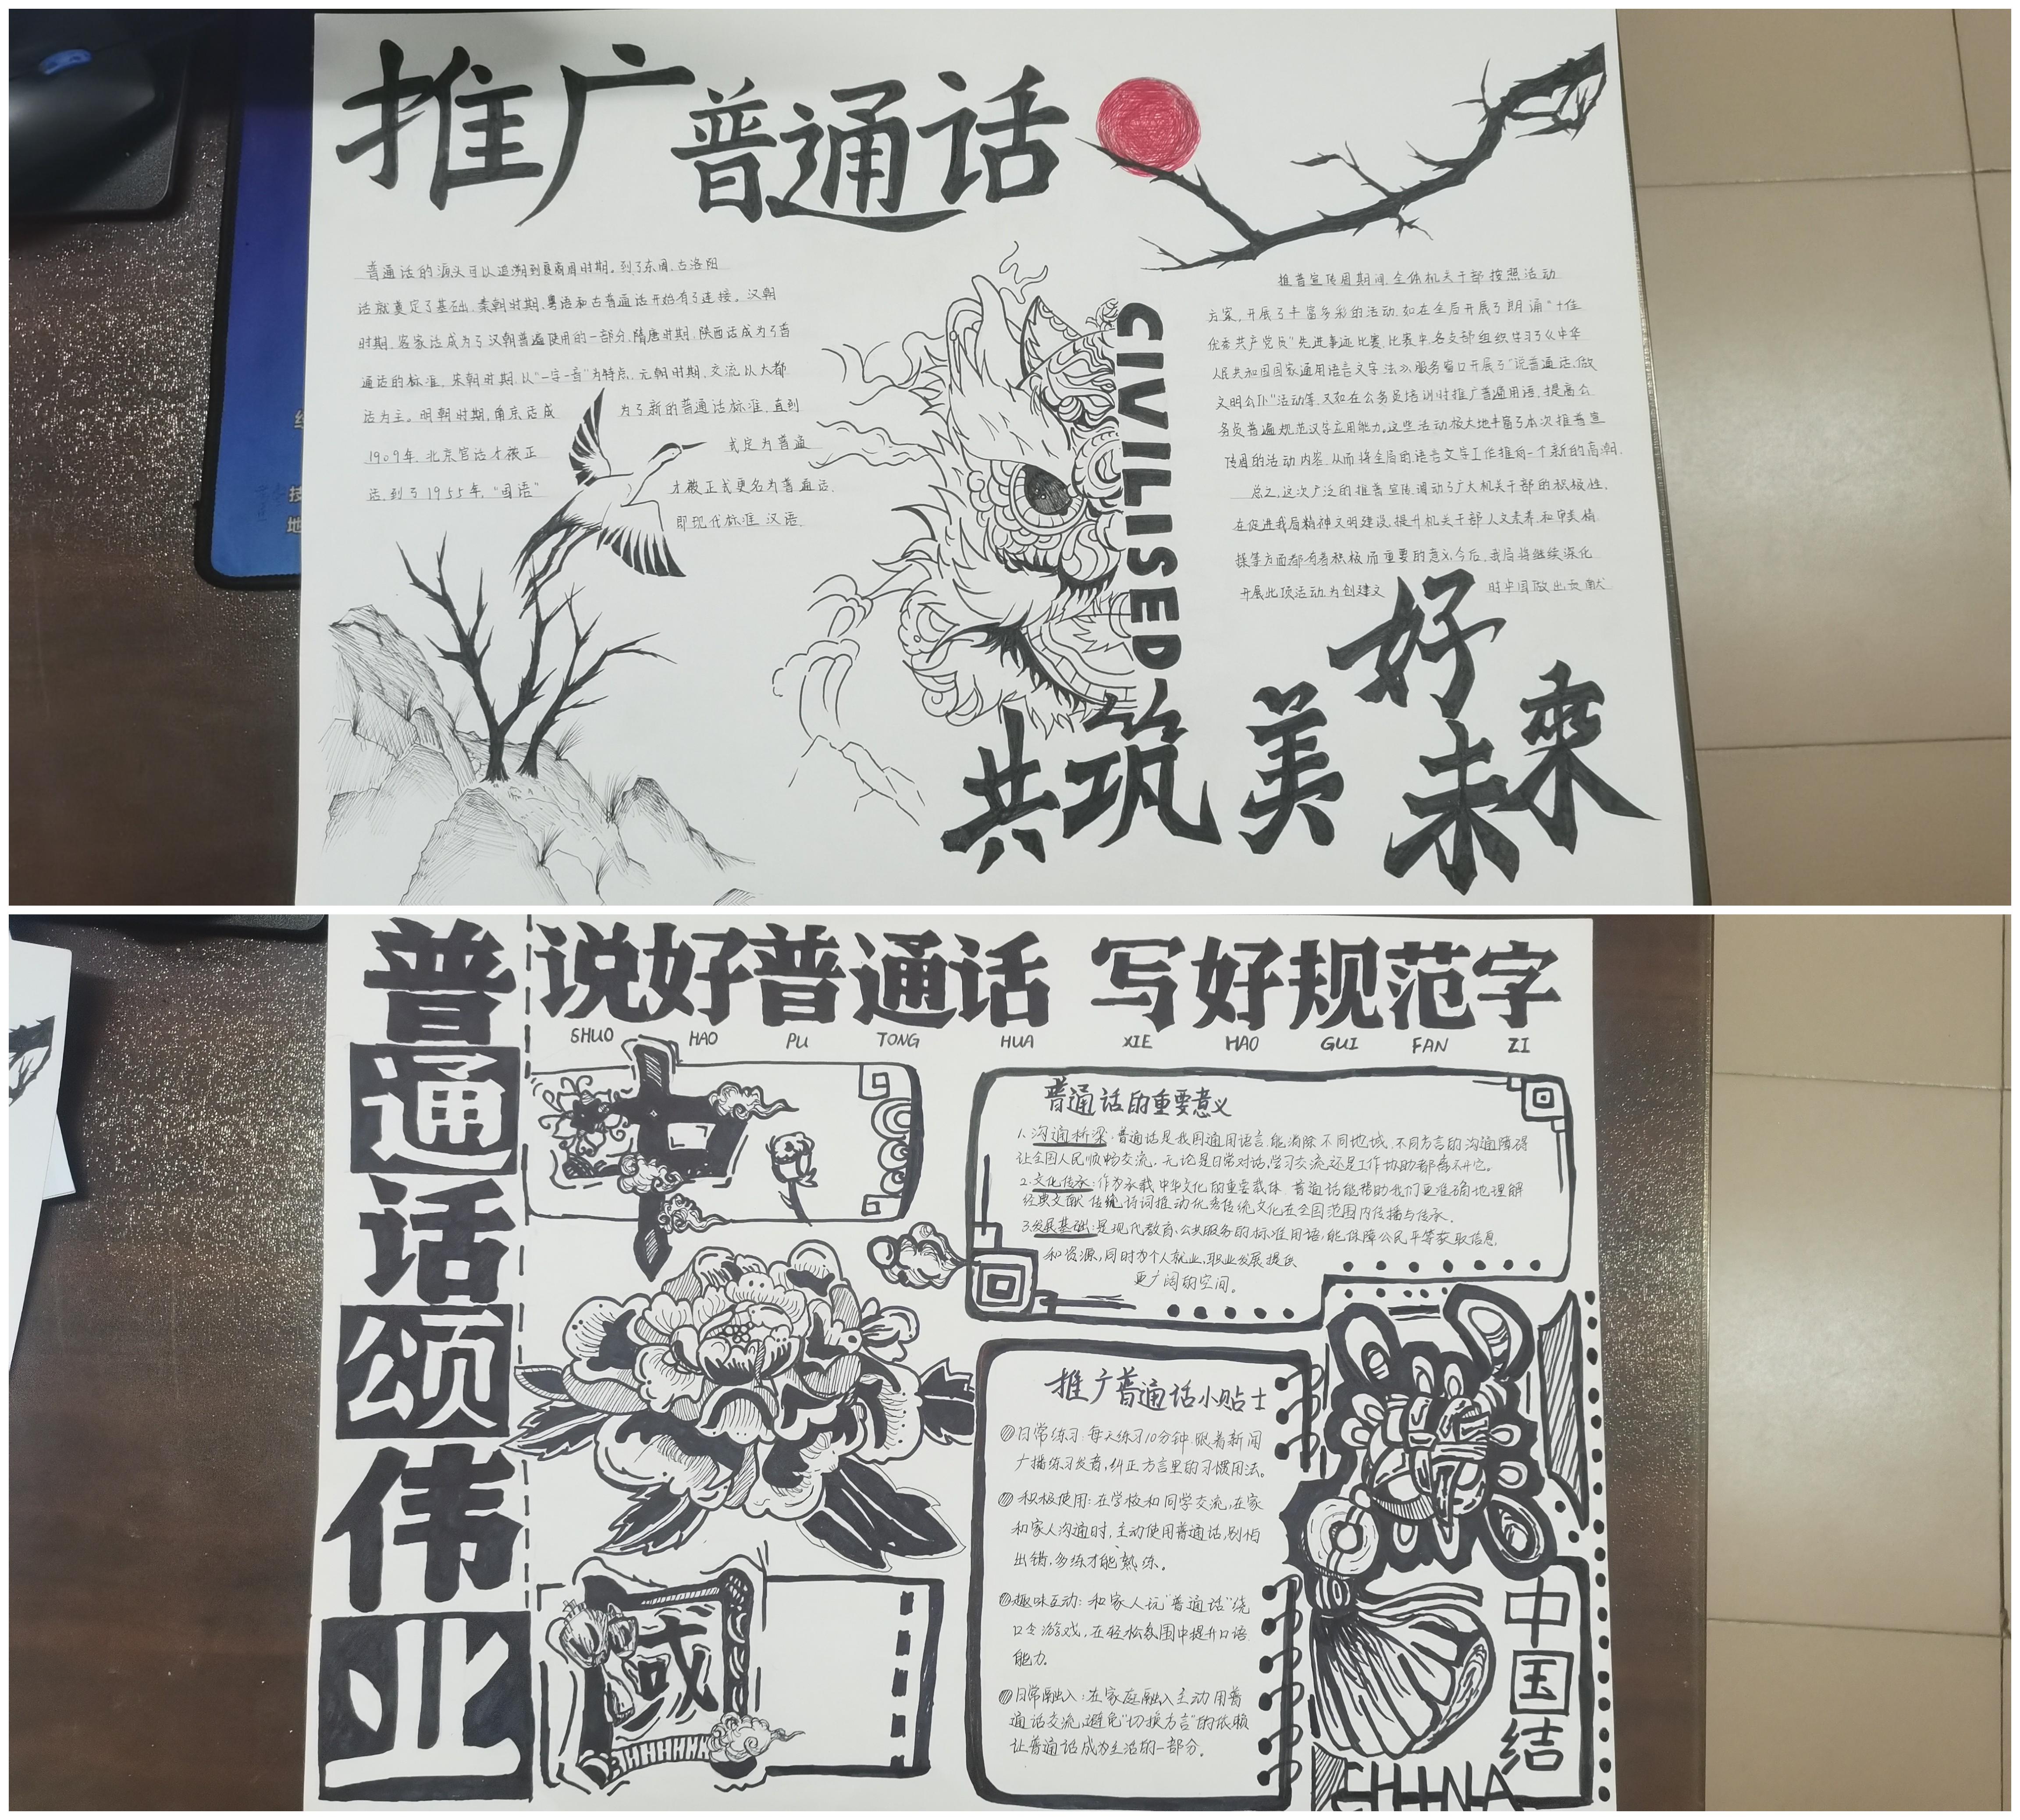 推广普通话
普通话的源头可以追溯到夏商周时期。到了东周,古洛阳
话就奠定了基础.秦朝时期,粤语和古普通话开始有了连接。汉朝
时期,客家话成为了汉朝普遍使用的一部分.隋唐时期,陕西话成为了普
通话的标准.宋朝时期,以“一字一音”为特点.元朝时期,交流以大都
话为主。明朝时期,南京话成为了新的普通话标准.直到
1909年,北京官话才被正式定为普通
话,到了1955年,“国语”才被正式更名为普通话.
即现代标准汉语.
CIVILISED
推普宣传周期间,全体机关干部按照活动
方案,开展了丰富多彩的活动.如在全局开展了朗诵“十佳
优秀共产党员”先进事迹比赛,比赛中,各支部组织学习了《中华
人民共和国国家通用语言文字法》,服务窗口开展了“说普通话,做
文明公仆”活动等.又如在公务员培训时推广普通用语,提高公
务员普通规范汉字应用能力.这些活动极大地丰富了本次推普宣
传周的活动内容.从而将全局的语言文字工作推向一个新的高潮.
总之,这次广泛的推普宣传,调动了广大机关干部的积极性,
在促进我局精神文明建设,提升机关干部人文素养,和审美情
操等方面都有着积极而重要的意义.今后,我局将继续深化
开展此项活动.为创建文 时中国做出贡献
共筑美好未来
普通话颂伟业
说好普通话 写好规范字
SHUO HAO PU TONG HUA XIE HAO GUI FAN ZI
中
國
普通话的重要意义
1.沟通桥梁:普通话是我国通用语言,能消除不同地域、不同方言的沟通障碍
让全国人民顺畅交流,无论是日常对话,学习交流还是工作协助都离不开它。
2.文化传承:作为承载中华文化的重要载体 普通话能帮助我们更准确地理解
经典文献 传统诗词推动优秀传统文化在全国范围内传播与传承.
3.发展基础:是现代教育,公共服务的标准用语,能保障公民平等获取信息,
和资源,同时为个人就业,职业发展提供
更广阔的空间。
推广普通话小贴士
日常练习:每天练习10分钟.跟着新闻
广播练习发音,纠正方言里的习惯用法。
积极使用:在学校和同学交流,在家
和家人沟通时,主动使用普通话,别怕
出错,多练才能熟练。
趣味互动:和家人玩“普通话”绕
口令游戏,在轻松氛围中提升口语
能力.
日常融入:在家庭融入主动用普
通话交流,避免“切换方言”的依赖
让普通话成为生活的一部分。
中国结
CHINA